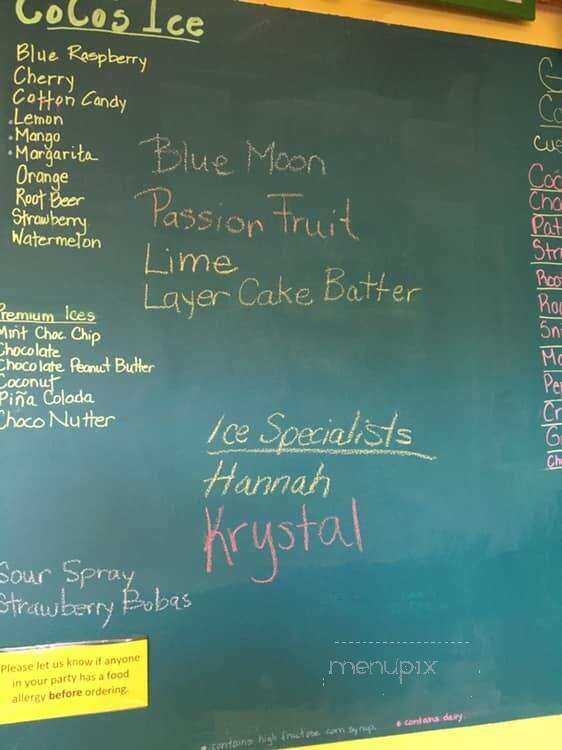 CoCo's Ice
Blue Raspberry
Cherry
Cotton Candy
Lemon
Mango
Margarita
Orange
Root Beer
Strawberry
Watermelon
Blue Moon
Passion Fruit
Lime
Layer Cake Batter
Premium Ices
Mint Choc Chip
Chocolate
Chocolate Peanut Butter
Coconut
Piña Colada
Choco Nutter
Ice Specialists
Hannah
Krystal
Sour Spray
Strawberry Bobas
Please let us know if anyone
in your party has a food
allergy before ordering.
menupix
* contains high fructose corn syrup.
* contains dairy.